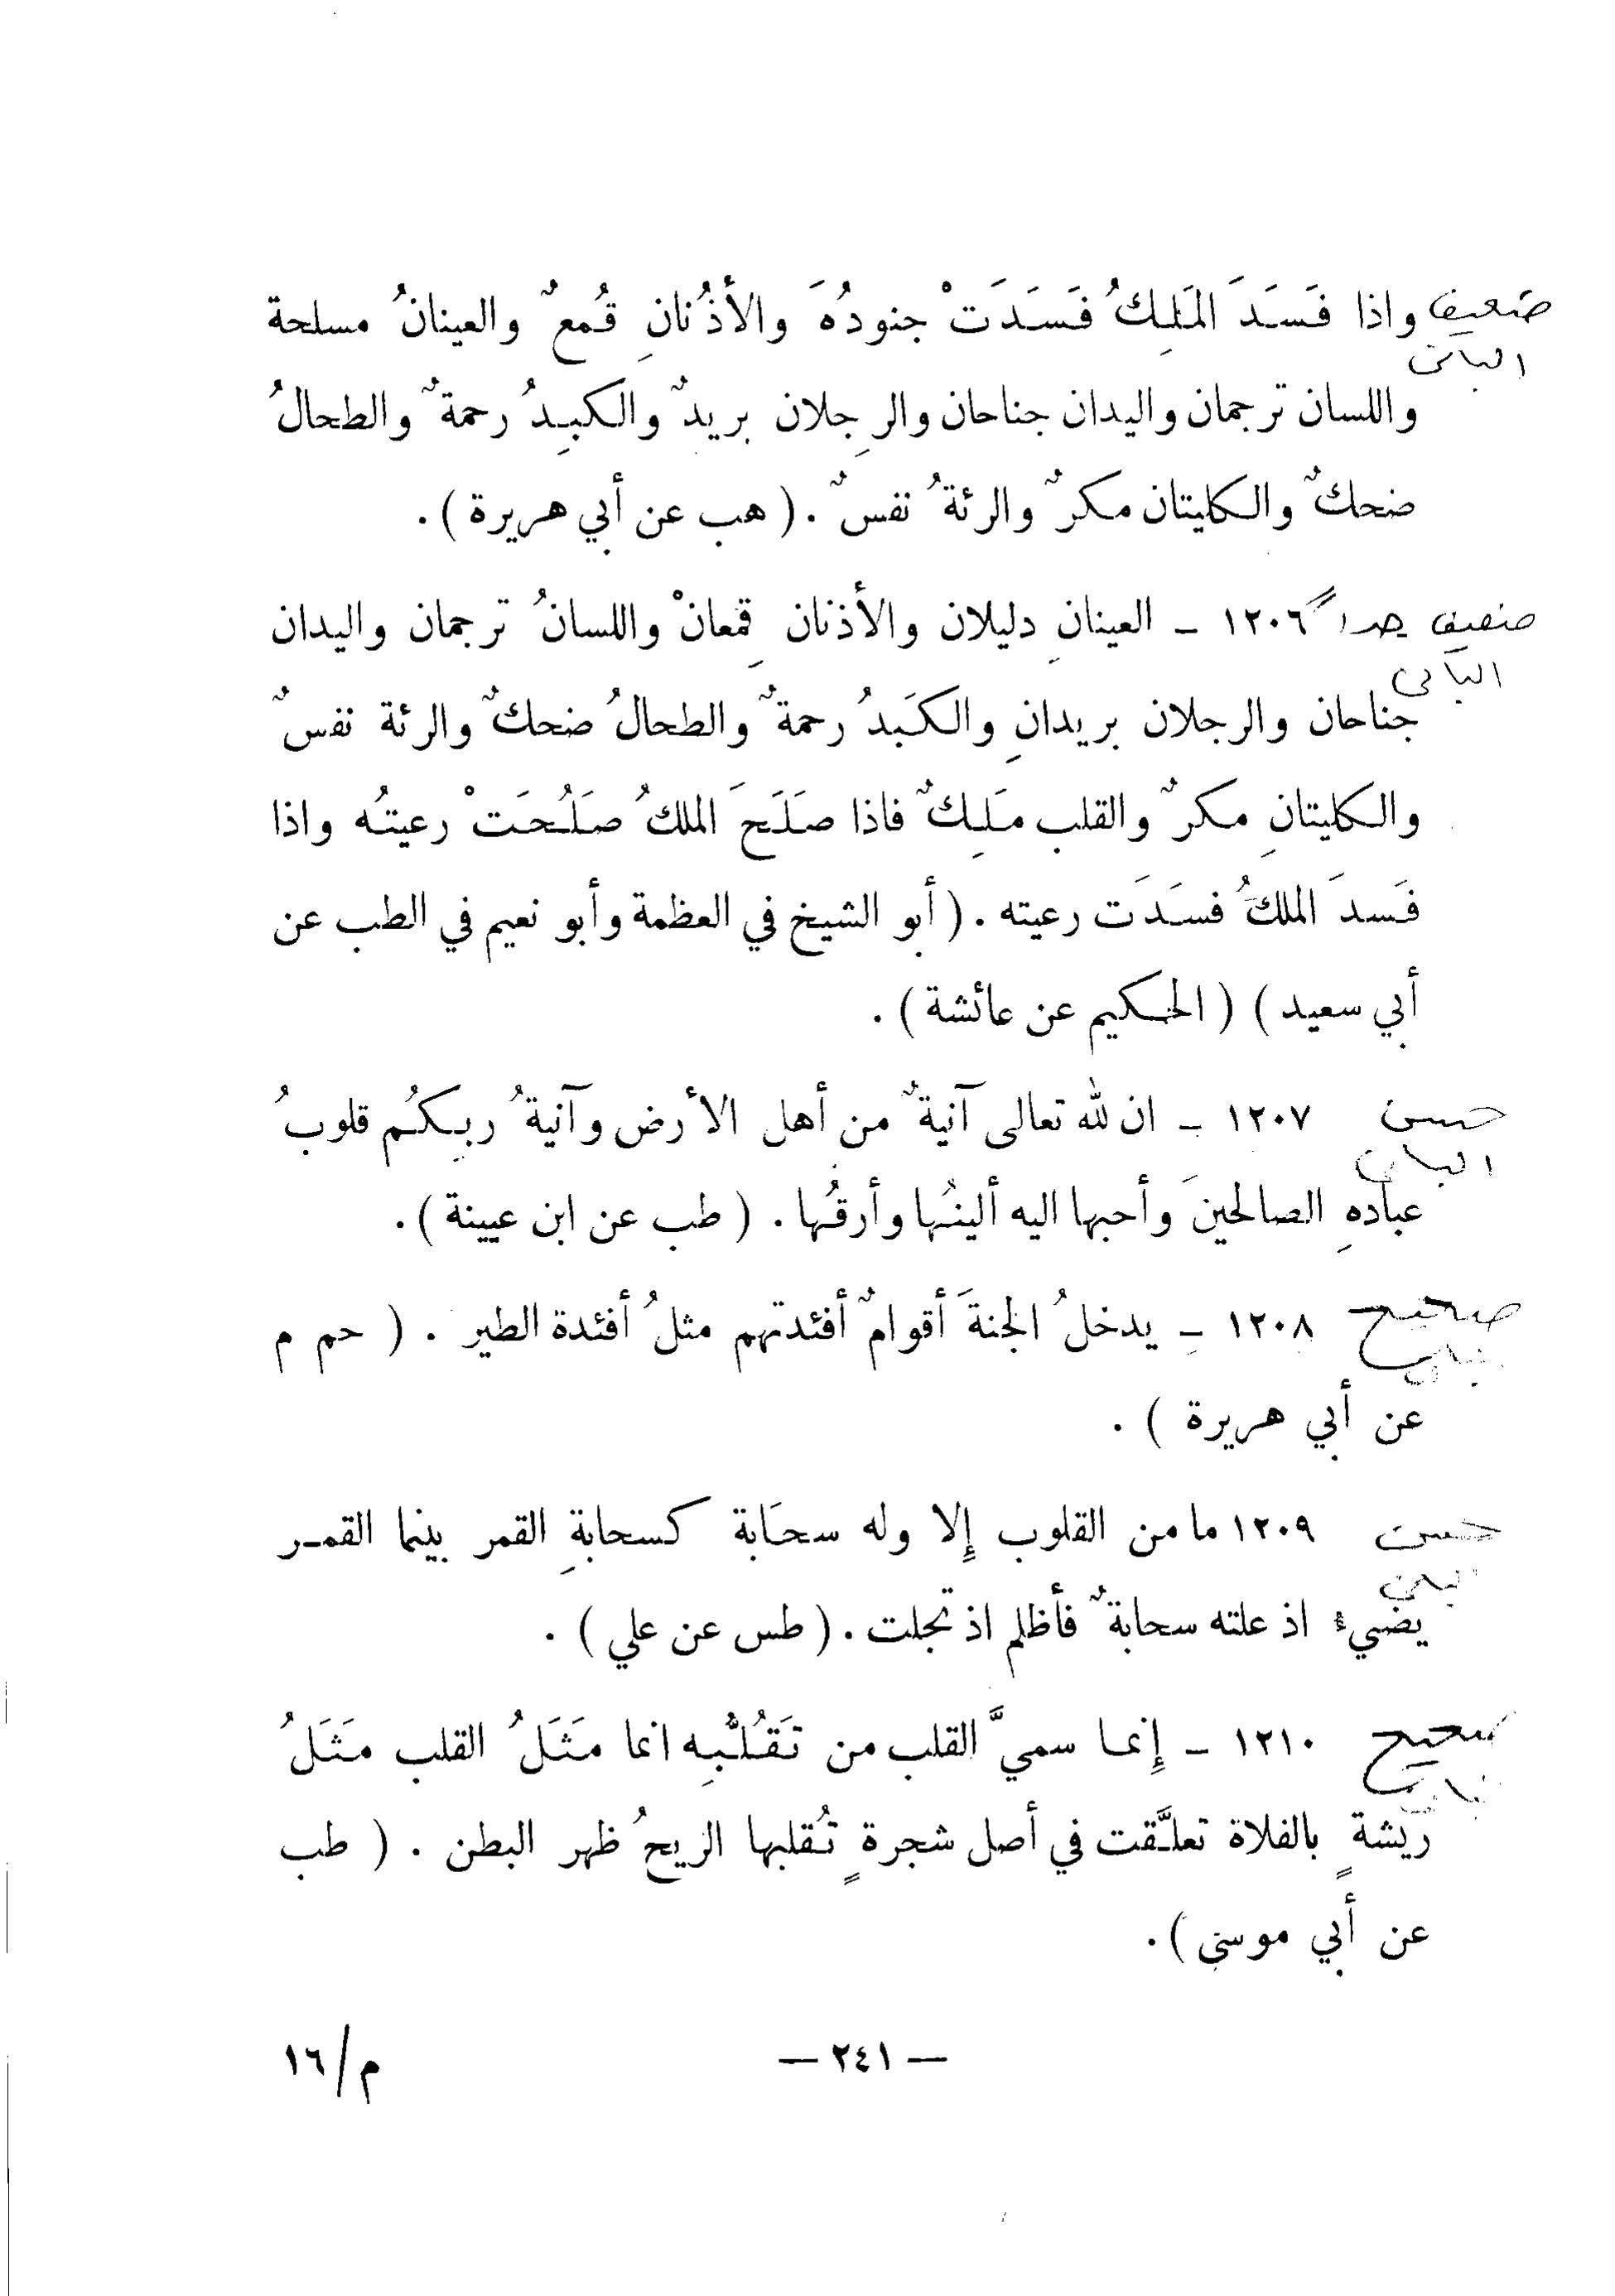 ضعيف واذا فَسَدَ المَلِكُ فَسَدَتْ جنودُهَ والأذُنانِ قُمعٌ والعينانُ مسلحة
البانى
واللسان ترجمان واليدان جناحان والرِجلان بريدٌ والكبِدُ رحمةٌ والطحالُ
ضحكٌ والكليتان مكرٌ والرئةُ نفسٌ . ( هب عن أبي هريرة ) .
ضعيف جداً ١٢٠٦ – العينانِ دليلان والأذنان قِمعانْ واللسانُ ترجمان واليدان
البانى
جناحان والرجلان بريدانِ والكَبدُ رحمةٌ والطحالُ ضحكٌ والرئة نفسٌ
والكليتانِ مكرٌ والقلب مَلِكٌ فاذا صَلَحَ الملكُ صَلُحَتْ رعيتُه واذا
فَسدَ الملكُ فسَدَت رعيته . ( أبو الشيخ في العظمة وأبو نعيم في الطب عن
أبي سعيد ) ( الحكيم عن عائشة ) .
حسن ١٢٠٧ – ان لله تعالى آنيةٌ من أهل الأرض وآنيةُ ربِكُم قلوبُ
البانى
عبادهِ الصالحينَ وأحبها اليه ألينُها وأرقُها . ( طب عن ابن عيينة ) .
صحيح ١٢٠٨ – يدخلُ الجنةَ أقوامٌ أفئدتهم مثلُ أفئدة الطير . ( حم م
البانى
عن أبي هريرة ) .
حسن ١٢٠٩ ما من القلوب إِلا وله سحَابة كسحابةِ القمر بينما القمر
البانى
يضيء اذ علته سحابةٌ فأظلم اذ تجلت . ( طس عن علي ) .
صحيح ١٢١٠ – إِنما سميَّ القلب من تَقُلُّبِه انما مَثَلُ القلب مَثَلُ
البانى
ريشةٍ بالفلاة تعلَّقت في أصل شجرةٍ تُقلبها الريحُ ظهر البطن . ( طب
عن أبي موسى ) .
— ٢٤١ —
م/١٦